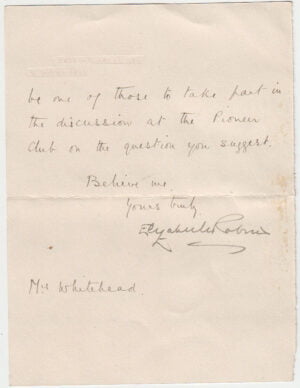 be one of those to take part in
the discussion at the Pioneer
Club on the question you suggest.
Believe me
Yours truly
Elizabeth Robins
Mrs Whitehead.